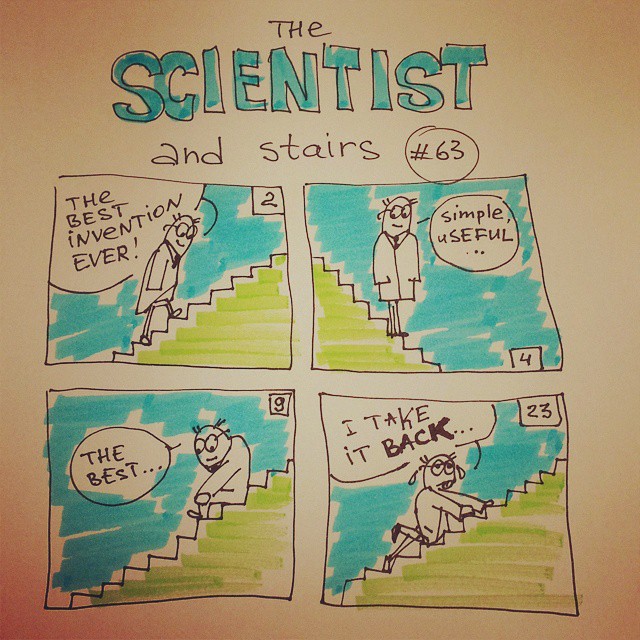 THE
SCIENTIST
and stairs #63
THE
BEST
iNVENTiON
EVER!
2
simple,
USEFUL
...
4
THE
BEST...
9
I TAKE
iT BACK...
23